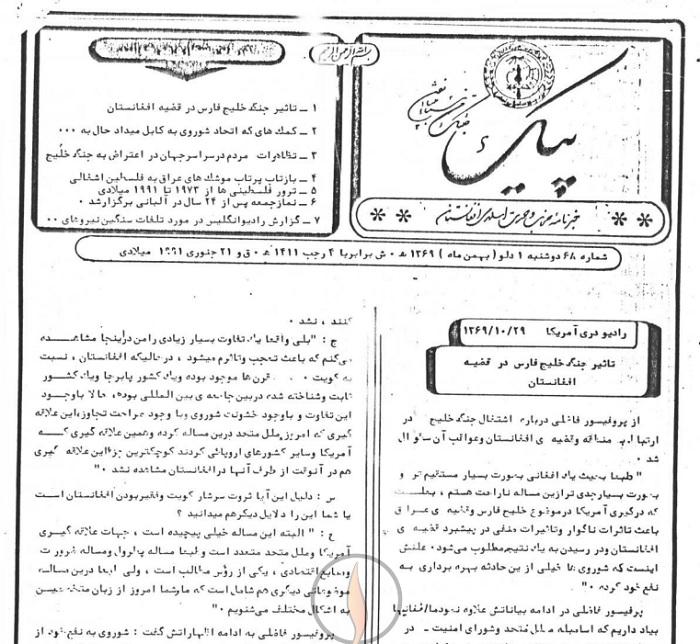 بسم الله الرحمن الرحیم
پیک
خبرنامه حزب وحدت اسلامی افغانستان
۱ ــ تاثیر جنگ خلیج فارس در قضیه افغانستان
۲ ــ کمک های که اتحاد شوروی به کابل میداد حال به ۰۰۰
۳ ــ تظاهرات مردم در سراسر جهان در اعتراض به جنگ خلیج
۴ ــ بازتاب پرتاب موشک های عراق به فلسطین اشغالی
۵ ــ ترور فلسطینی ها از ۱۹۷۳ تا ۱۹۹۱ میلادی
۶ ــ نماز جمعه پس از ۲۴ سال در آلبانی برگزار شد ۰
۷ ــ گزارش رادیو انگلیس در مورد تلفات سنگین نیروهای ۰۰
شماره ۶۸ دوشنبه ۱ دلو ( بهمن ماه ) ۱۳۶۹ هـ ۰ ش برابر با ۴ رجب ۱۴۱۱ هـ ۰ ق و ۲۱ جنوری ۱۹۹۱ میلادی
رادیو دری آمریکا ۱۳۶۹/۱۰/۲۹
تاثیر جنگ خلیج فارس در قضیه
افغانستان
از پروفیسور فاضلی درباره اشتعال جنگ خلیج در
ارتباط به منطقه وقضیه ی افغانستان وعواقب آن سئوال
شد ۰
" طبعا بحیث یک افغانی بصورت بسیار مستقیم تر و
بصورت بسیار جدی تر ازین مساله ناراحت هستم ، بعلت
که درگیری آمریکا در موضوع خلیج فارس وقضیه ی عراق
باعث تاثرات ناگوار وتاثیرات منفی در پیشبرد قضیه ی
افغانستان ودر رسیدن به یک نتیجه مطلوب می شود ۰ علتش
اینست که شوروی ها خیلی از ین حادثه بهره برداری به
نفع خود کرده ۰ "
پرفیسور فاضلی در ادامه بیاناتش علاوه نمود
بیاد داریم که اساسیله ملل متحد وشورای امنیت ــ در
کنند ، نشد ۰
ج : " بلی واقعا یک تفاوت بسیار زیادی را من در اینجا مشاهده
می کنم که باعث تعجب وتاثرم میشود ، در حالیکه افغانستان ، نسبت
به کویت ۰ ۰ ۰ قرن ها موجود بوده ویک کشور پابرجا ویک کشور
ثابت وشناخته شده در بین جامعه ی بین المللی بوده ، حالا باوجود
این تفاوت و باوجود خشونت شوروی وبا وجود صراحت تجاوز، این علاقه
گیری که امروز ملل متحد درین مساله کرده وهمین علاقه گیری که
آمریکا وسایر کشورهای اروپائی کردند کوچکترین جزء این علاقه گیری
هم در آنوقت از طرف آنها در افغانستان مشاهده نشد ۰ "
س : دلیل این آیا ثروت سرشار کویت وفقیر بودن افغانستان است
یا شما این را دلایل دیگر هم میدانید ؟
ج : " البته این مساله خیلی پیچیده است ، جهات علاقه گیری
آمریکا وملل متحد متعدد است و طبعا مساله پترول ومساله ضرورت
ومنابع اقتصادی ، یکی از رؤس مطالب است ، ولی ایضا درین مساله
موضوعاتی دیگری هم شامل است که ما وشما امروز از زبان متخصصین
به اشکال مختلف می شنویم ۰ "
پروفیسور فاضلی به ادامه اظهاراتش گفت : شوروی به نفع خود از